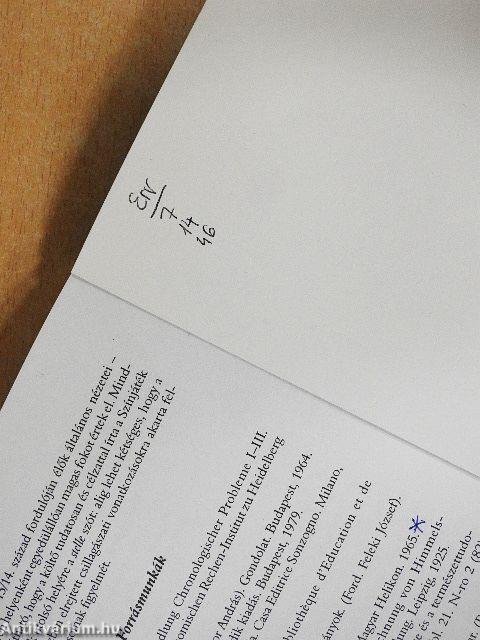 ÉN
7
14
46
3/14. század fordulóján élők általános nézetei –
helyenként egyedülállóan magas fokot értek el. Mind-
hogy a költő tudatosan és célzattal írta a Színjáték
utolsó helyére a stelle szót: alig lehet kétséges, hogy a
elrejtett csillagászati vonatkozásokra akarta fel-
figyelmét.
Forrásmunkák
dlung Chronologischer Probleme I–III.
nomischen Rechen-Institut zu Heidelberg
or András). Gondolat Budapest, 1964.
dik kiadás. Budapest, 1979.
Casa Editrice Sonzogno. Milano,
bliothèque d'Education et de
ányok. (Ford. Feleki József).
Magyar Helikon. 1965.*
chnung von Himmels-
ng. Leipzig, 1925.
és a természettudo-
21. N-ro 2 (82)
Antikvarium.hu